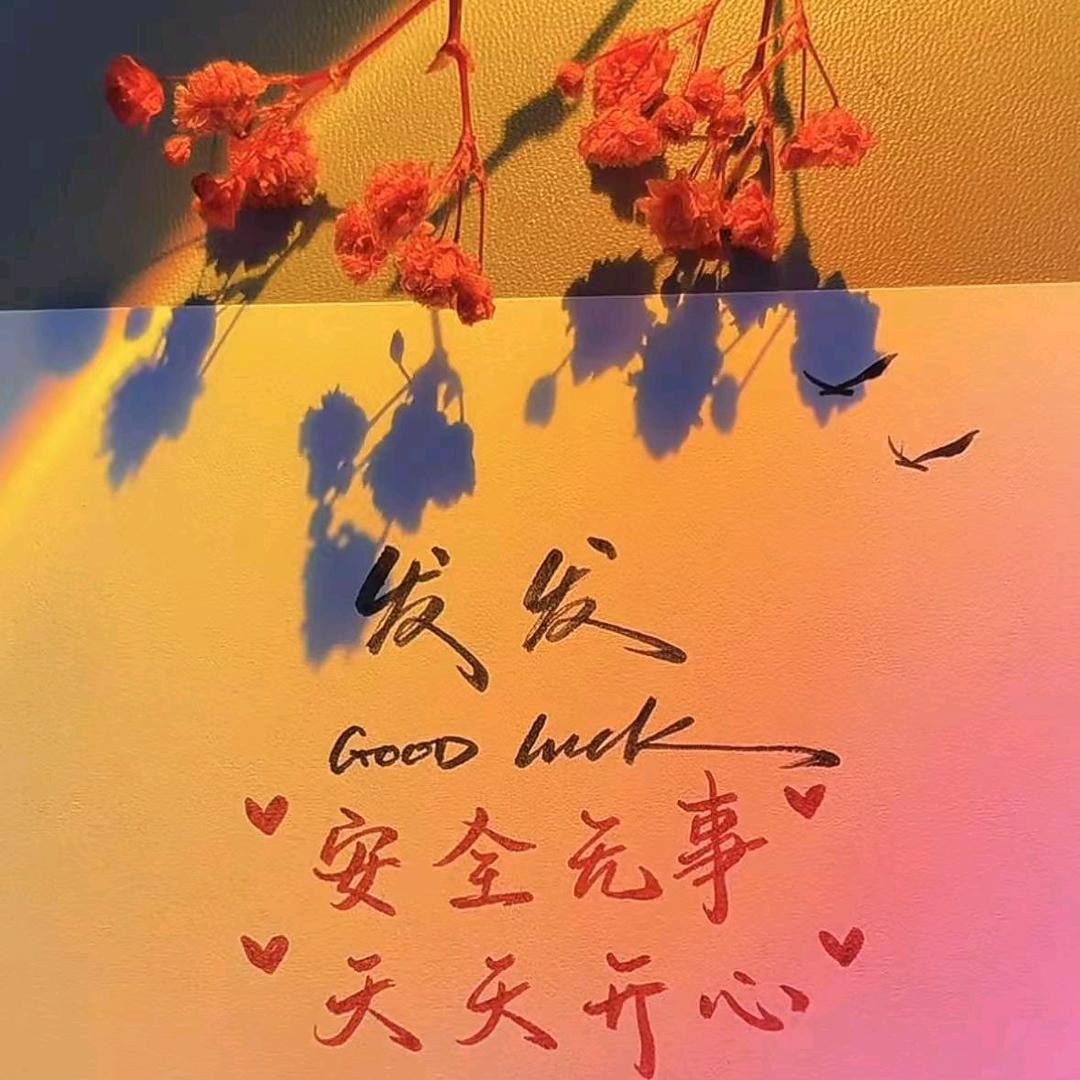 发发
GOOD luck
安全无事
天天开心